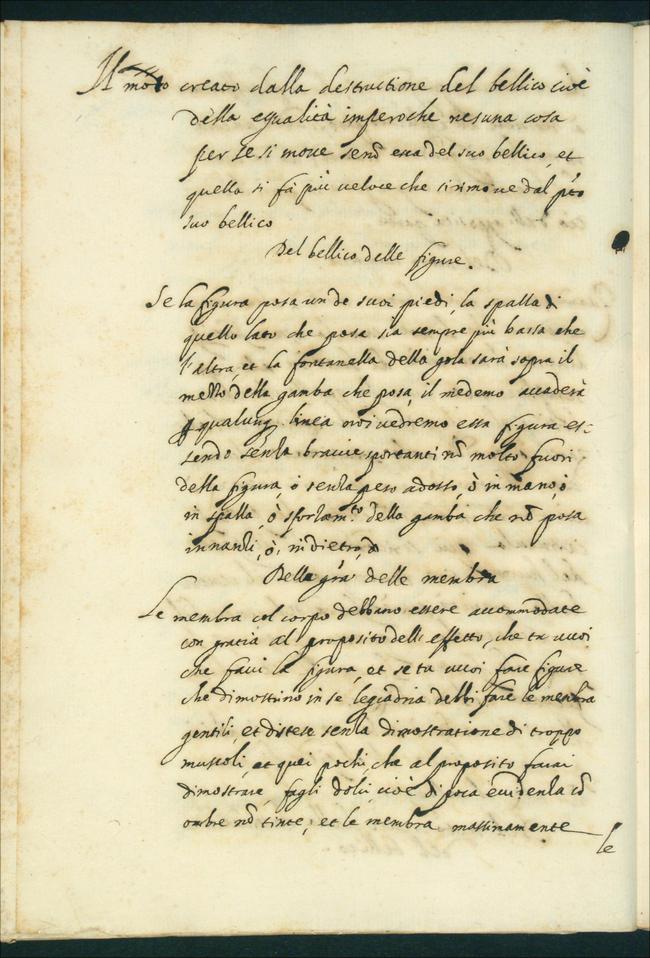 Il moto creato dalla destructione del bellico cioè
della equalità imperoche nesuna cosa
per se si moue senõ esca del suo bellico, et
quella si fà più ueloce che si rimoue dal pto
suo bellico
Del bellico delle figure.
Se la figura posa un de suoi piedi, la spalla di
quello lato che posa sia sempre più bassa che
l'altra, et la fontanella della gola sarà sopra il
mezzo della gamba che posa, il medemo accaderà
qualunq linea noi uedremo essa figura es:
sendo senza braccie sportanti nõ molto fuori
della figura, ò senza peso adosso, ò in mano, ò
in spalla, ò sforzam.to della gamba che nõ posa
innanzi, ò, in dietro,
Della gra delle membra
Le membra col corpo debbano essere accommodate
con gratia al proposito dell effetto, che tu uuoi
che facci la figura, et se tu uuoi fare figure
che dimostrino in se legiadria debbi fare le membra
gentili, et distese senza dimostratione di troppo
muscoli, et quei pochi, che al proposito farai
dimostrare, fagli dolci, cioè di poca euidenza cõ
ombre nõ tinte, et le membra massimamente
le